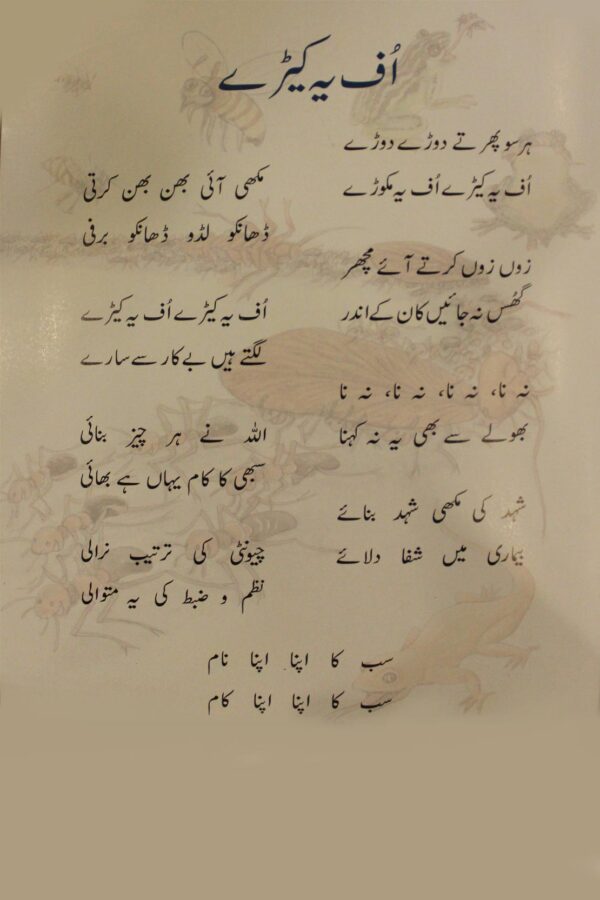 اُف یہ کیڑے
ہر سو پھرتے دوڑے دوڑے
اُف یہ کیڑے اُف یہ مکوڑے
مکھی آئی بھن بھن کرتی
ڈھانکو لڈو ڈھانکو برفی
زوں زوں کرتے آئے مچھر
گھُس نہ جائیں کان کے اندر
اُف یہ کیڑے اُف یہ کیڑے
لگتے ہیں بے کار سے سارے
نہ نا، نہ نا، نہ نا، نہ نا
بھولے سے بھی یہ نہ کہنا
اللہ نے ہر چیز بنائی
سبھی کا کام یہاں ہے بھائی
شہد کی مکھی شہد بنائے
بیماری میں شفا دلائے
چیونٹی کی ترتیب نرالی
نظم و ضبط کی یہ متوالی
سب کا اپنا اپنا نام
سب کا اپنا اپنا کام